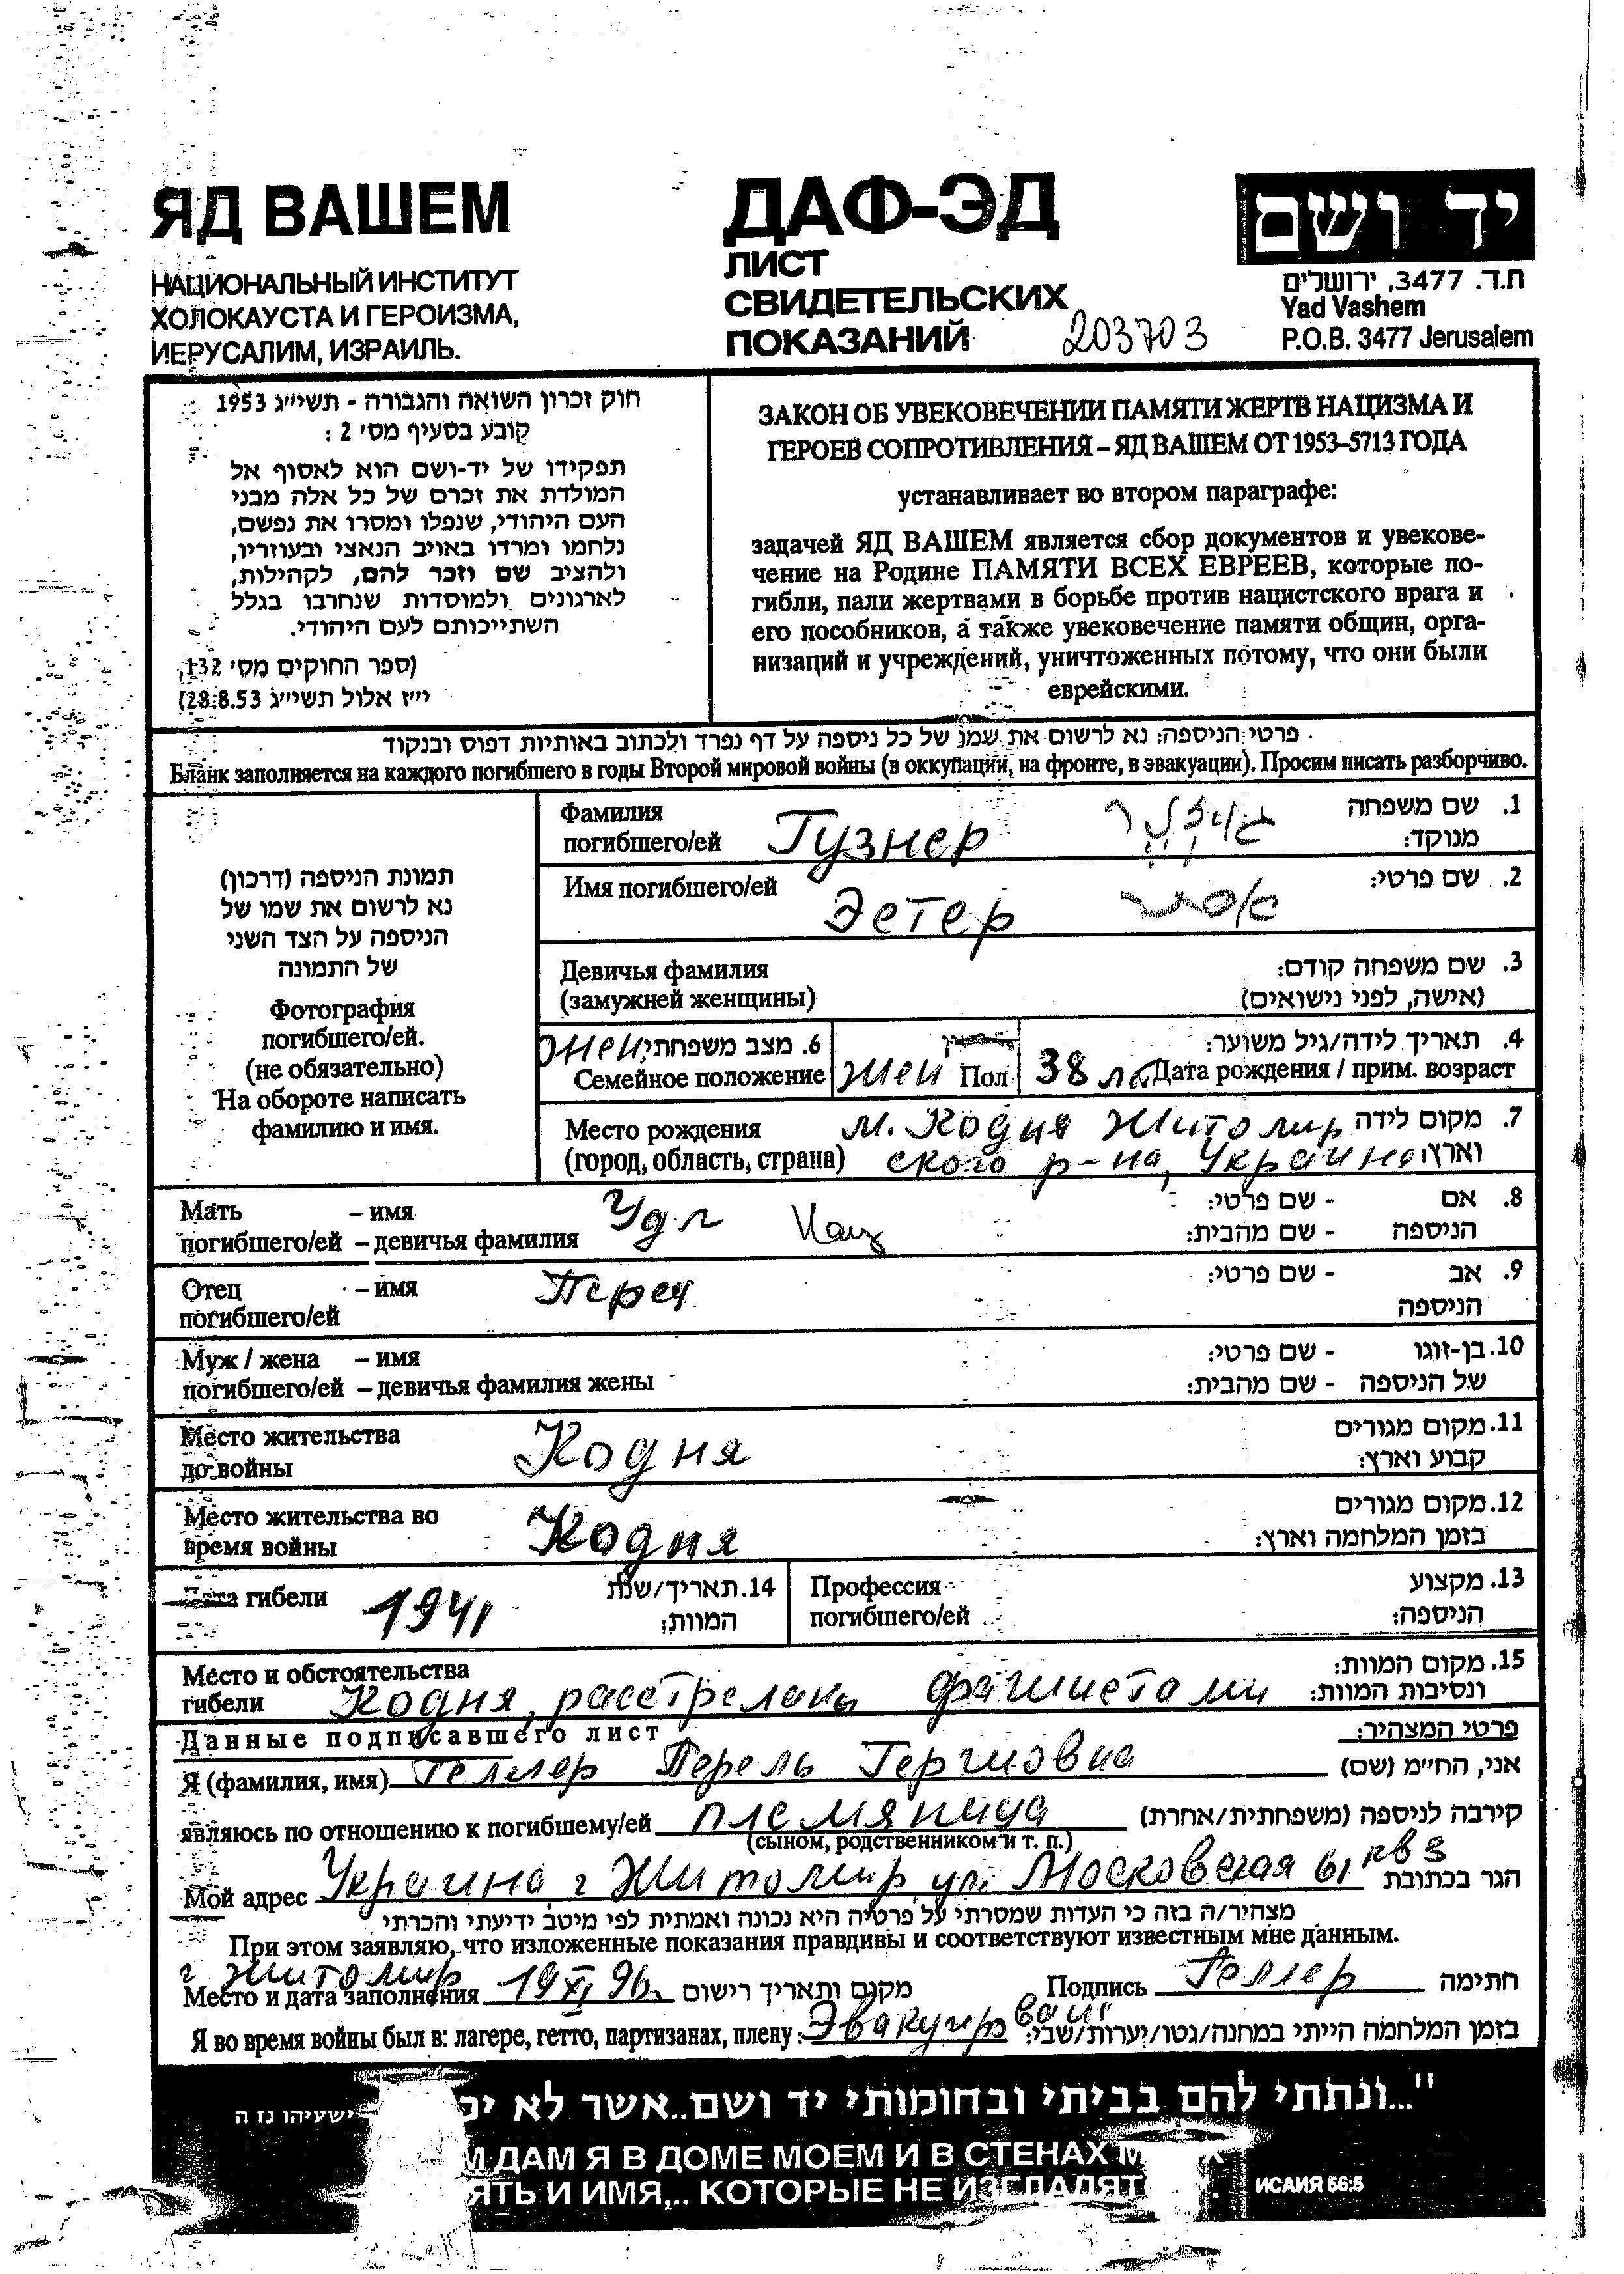 ЯД ВАШЕМ
НАЦИОНАЛЬНЫЙ ИНСТИТУТ
ХОЛОКАУСТА И ГЕРОИЗМА,
ИЕРУСАЛИМ, ИЗРАИЛЬ.
ДАФ-ЭД
ЛИСТ
СВИДЕТЕЛЬСКИХ
ПОКАЗАНИЙ 203703
יד ושם
ת.ד. 3477, ירושלים
Yad Vashem
P.O.B. 3477 Jerusalem
חוק זכרון השואה והגבורה - תשי״ג 1953
קובע בסעיף מס׳ 2 :
תפקידו של יד-ושם הוא לאסוף אל
המולדת את זכרם של כל אלה מבני
העם היהודי, שנפלו ומסרו את נפשם,
נלחמו ומרדו באויב הנאצי ובעוזריו,
ולהציב שם וזכר להם, לקהילות,
לארגונים ולמוסדות שנחרבו בגלל
השתייכותם לעם היהודי.
(ספר החוקים מס׳ 132,
י״ז אלול תשי״ג 28.8.53)
ЗАКОН ОБ УВЕКОВЕЧЕНИИ ПАМЯТИ ЖЕРТВ НАЦИЗМА И
ГЕРОЕВ СОПРОТИВЛЕНИЯ – ЯД ВАШЕМ ОТ 1953–5713 ГОДА
устанавливает во втором параграфе:
задачей ЯД ВАШЕМ является сбор документов и увекове-
чение на Родине ПАМЯТИ ВСЕХ ЕВРЕЕВ, которые по-
гибли, пали жертвами в борьбе против нацистского врага и
его пособников, а также увековечение памяти общин, орга-
низаций и учреждений, уничтоженных потому, что они были
еврейскими.
פרטי הניספה: נא לרשום את שמו של כל ניספה על דף נפרד ולכתוב באותיות דפוס ובנקוד
Бланк заполняется на каждого погибшего в годы Второй мировой войны (в оккупации, на фронте, в эвакуации). Просим писать разборчиво.
תמונת הניספה (דרכון)
נא לרשום את שמו של
הניספה על הצד השני
של התמונה
Фотография
погибшего/ей.
(не обязательно)
На обороте написать
фамилию и имя.
Фамилия
погибшего/ей Гузнер גוזנר
1. שם משפחה
מנוקד:
Имя погибшего/ей Эстер אסתר
2. שם פרטי:
Девичья фамилия
(замужней женщины)
3. שם משפחה קודם:
(אישה, לפני נישואים)
6. מצב משפחתי:
Семейное положение
жен Пол
4. תאריך לידה/גיל משוער:
38 Дата рождения / прим. возраст
Место рождения
(город, область, страна)
м. Кодня Житомир
ского р-на, Украина
7. מקום לידה
וארץ:
Мать – имя
погибшего/ей – девичья фамилия
Удл Кац
8. אם - שם פרטי:
הניספה - שם מהבית:
Отец – имя
погибшего/ей
Перец
9. אב - שם פרטי:
הניספה
Муж / жена – имя
погибшего/ей – девичья фамилия жены
10. בן-זוגו - שם פרטי:
של הניספה - שם מהבית:
Место жительства
до войны
Кодня
11. מקום מגורים
קבוע וארץ:
Место жительства во
время войны
Кодня
12. מקום מגורים
בזמן המלחמה וארץ:
Дата гибели 1941
14. תאריך/שנת
המוות:
Профессия
погибшего/ей
13. מקצוע
הניספה:
Место и обстоятельства
гибели Кодня, расстреляны фашистами
15. מקום המוות:
ונסיבות המוות:
Данные подписавшего лист
פרטי המצהיר:
Я (фамилия, имя) Геллер Перель Гершовна אני, החי״מ (שם)
являюсь по отношению к погибшему/ей племяница קירבה לניספה (משפחתית/אחרת)
(сыном, родственником и т. п.)
Мой адрес Украина г Житомир, ул. Московская 61 кв 3 הגר בכתובת
מצהיר/ה בזה כי העדות שמסרתי על פרטיה היא נכונה ואמתית לפי מיטב ידיעתי והכרתי
При этом заявляю, что изложенные показания правдивы и соответствуют известным мне данным.
г Житомир
Место и дата заполнения 19 XI 96г. מקום ותאריך רישום Подпись Геллер חתימה
Я во время войны был в: лагере, гетто, партизанах, плену: Эвакуирован בזמן המלחמה הייתי במחנה/גטו/יערות/שבי:
"...ונתתי להם בביתי ובחומותי יד ושם..אשר לא
ישעיהו נז ה
ДАМ Я В ДОМЕ МОЕМ И В СТЕНАХ
И ИМЯ,.. КОТОРЫЕ НЕ ИЗГЛАДЯТ
ИСАИЯ 56:5